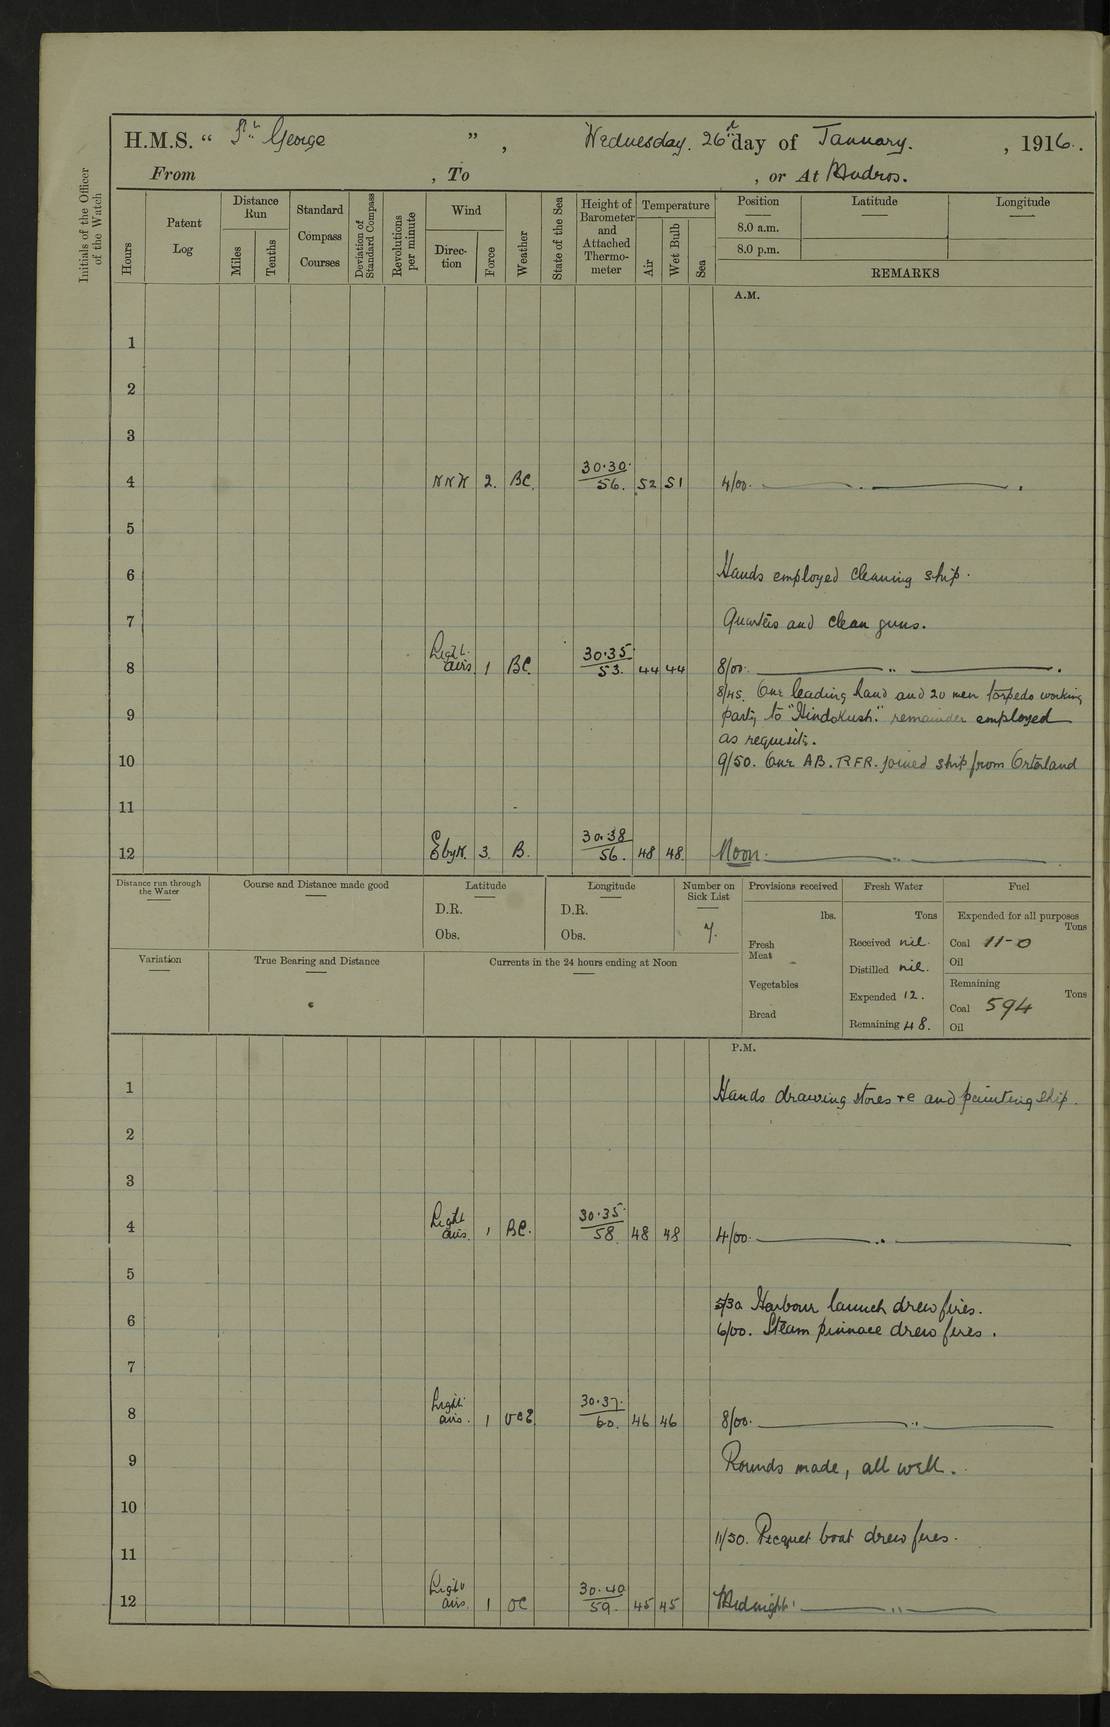 H.M.S. “ St George ” , Wednesday. 26th day of January. , 1916.
From , To , or At Mudros.
Initials of the Officer of the Watch
Hours
Patent Log
Distance Run
Miles
Tenths
Standard Compass Courses
Deviation of Standard Compass
Revolutions per minute
Wind
Direction
Force
Weather
State of the Sea
Height of Barometer and Attached Thermometer
Temperature
Air
Wet Bulb
Sea
Position
8.0 a.m.
8.0 p.m.
Latitude
Longitude
REMARKS
A.M.
1
2
3
4 NNW 2. BC. 30.30. 56. 52 51 4/00.
5
6 Hands employed cleaning ship.
7 Quarters and clean guns.
8 Light airs 1 BC. 30.35 53. 44 44 8/00.
8/45. One leading hand and 20 men torpedo working
9 party to "Hindokush." remainder employed
as requisite.
10 9/50. One AB. RFR. joined ship from
11
12 EbyN. 3. B. 30.38 56. 48 48. Noon.
Distance run through the Water
Course and Distance made good
Latitude
D.R.
Obs.
Longitude
D.R.
Obs.
Number on Sick List
7.
Provisions received
lbs.
Fresh Meat
Vegetables
Bread
Fresh Water
Tons
Received nil.
Distilled nil.
Expended 12.
Remaining 48.
Fuel
Expended for all purposes
Tons
Coal 11-0
Oil
Remaining
Tons
Coal 594
Oil
Variation
True Bearing and Distance
Currents in the 24 hours ending at Noon
P.M.
1 Hands drawing stores &c and painting ship.
2
3
4 Light airs. 1 BC. 30.35. 58 48 48 4/00.
5
5/30 Harbour launch drew fires.
6 6/00. Steam pinnace drew fires.
7
8 Light airs. 1 30.37. 60. 46 46 8/00.
9 Rounds made, all well.
10
11/30. Picquet boat drew fires.
11
12 Light airs. 1 OC 30.40 59. 45 45 Midnight.